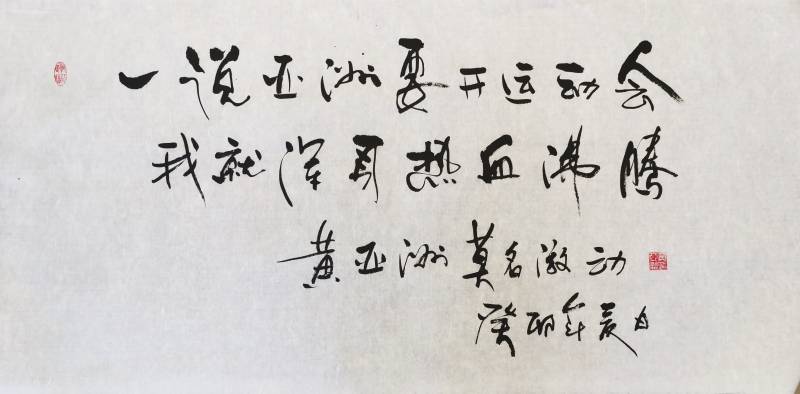 一说亚洲要开运动会
我就浑身热血沸腾
黄亚洲莫名激动
癸卯年夏日